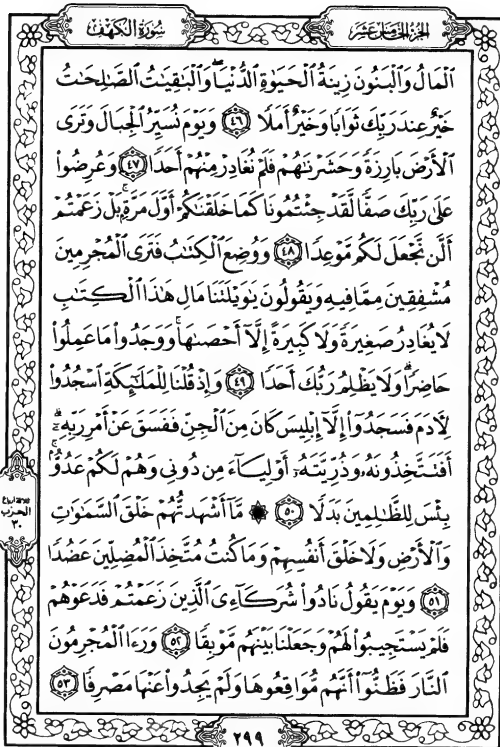 سُورَةُ الْكَهْفِ
الجُزْءُ الخَامِسَ عَشَرَ
ٱلْمَالُ وَٱلْبَنُونَ زِينَةُ ٱلْحَيَوٰةِ ٱلدُّنْيَا ۖ وَٱلْبَٰقِيَٰتُ ٱلصَّٰلِحَٰتُ
خَيْرٌ عِندَ رَبِّكَ ثَوَابًا وَخَيْرٌ أَمَلًا ٤٦ وَيَوْمَ نُسَيِّرُ ٱلْجِبَالَ وَتَرَى
ٱلْأَرْضَ بَارِزَةً وَحَشَرْنَٰهُمْ فَلَمْ نُغَادِرْ مِنْهُمْ أَحَدًا ٤٧ وَعُرِضُوا۟
عَلَىٰ رَبِّكَ صَفًّا لَّقَدْ جِئْتُمُونَا كَمَا خَلَقْنَٰكُمْ أَوَّلَ مَرَّةٍۭ ۚ بَلْ زَعَمْتُمْ
أَلَّن نَّجْعَلَ لَكُم مَّوْعِدًا ٤٨ وَوُضِعَ ٱلْكِتَٰبُ فَتَرَى ٱلْمُجْرِمِينَ
مُشْفِقِينَ مِمَّا فِيهِ وَيَقُولُونَ يَٰوَيْلَتَنَا مَالِ هَٰذَا ٱلْكِتَٰبِ
لَا يُغَادِرُ صَغِيرَةً وَلَا كَبِيرَةً إِلَّآ أَحْصَىٰهَا ۚ وَوَجَدُوا۟ مَا عَمِلُوا۟
حَاضِرًا ۗ وَلَا يَظْلِمُ رَبُّكَ أَحَدًا ٤٩ وَإِذْ قُلْنَا لِلْمَلَٰٓئِكَةِ ٱسْجُدُوا۟
لِءَادَمَ فَسَجَدُوٓا۟ إِلَّآ إِبْلِيسَ كَانَ مِنَ ٱلْجِنِّ فَفَسَقَ عَنْ أَمْرِ رَبِّهِۦٓ ۗ
أَفَتَتَّخِذُونَهُۥ وَذُرِّيَّتَهُۥٓ أَوْلِيَآءَ مِن دُونِى وَهُمْ لَكُمْ عَدُوٌّۢ ۚ
بِئْسَ لِلظَّٰلِمِينَ بَدَلًا ٥٠ ۞ مَّآ أَشْهَدتُّهُمْ خَلْقَ ٱلسَّمَٰوَٰتِ
وَٱلْأَرْضِ وَلَا خَلْقَ أَنفُسِهِمْ وَمَا كُنتُ مُتَّخِذَ ٱلْمُضِلِّينَ عَضُدًا
٥١ وَيَوْمَ يَقُولُ نَادُوا۟ شُرَكَآءِىَ ٱلَّذِينَ زَعَمْتُمْ فَدَعَوْهُمْ
فَلَمْ يَسْتَجِيبُوا۟ لَهُمْ وَجَعَلْنَا بَيْنَهُم مَّوْبِقًا ٥٢ وَرَءَا ٱلْمُجْرِمُونَ
ٱلنَّارَ فَظَنُّوٓا۟ أَنَّهُم مُّوَاقِعُوهَا وَلَمْ يَجِدُوا۟ عَنْهَا مَصْرِفًا ٥٣
ثلاثة أرباع
الحزب
٣٠
٢٩٩